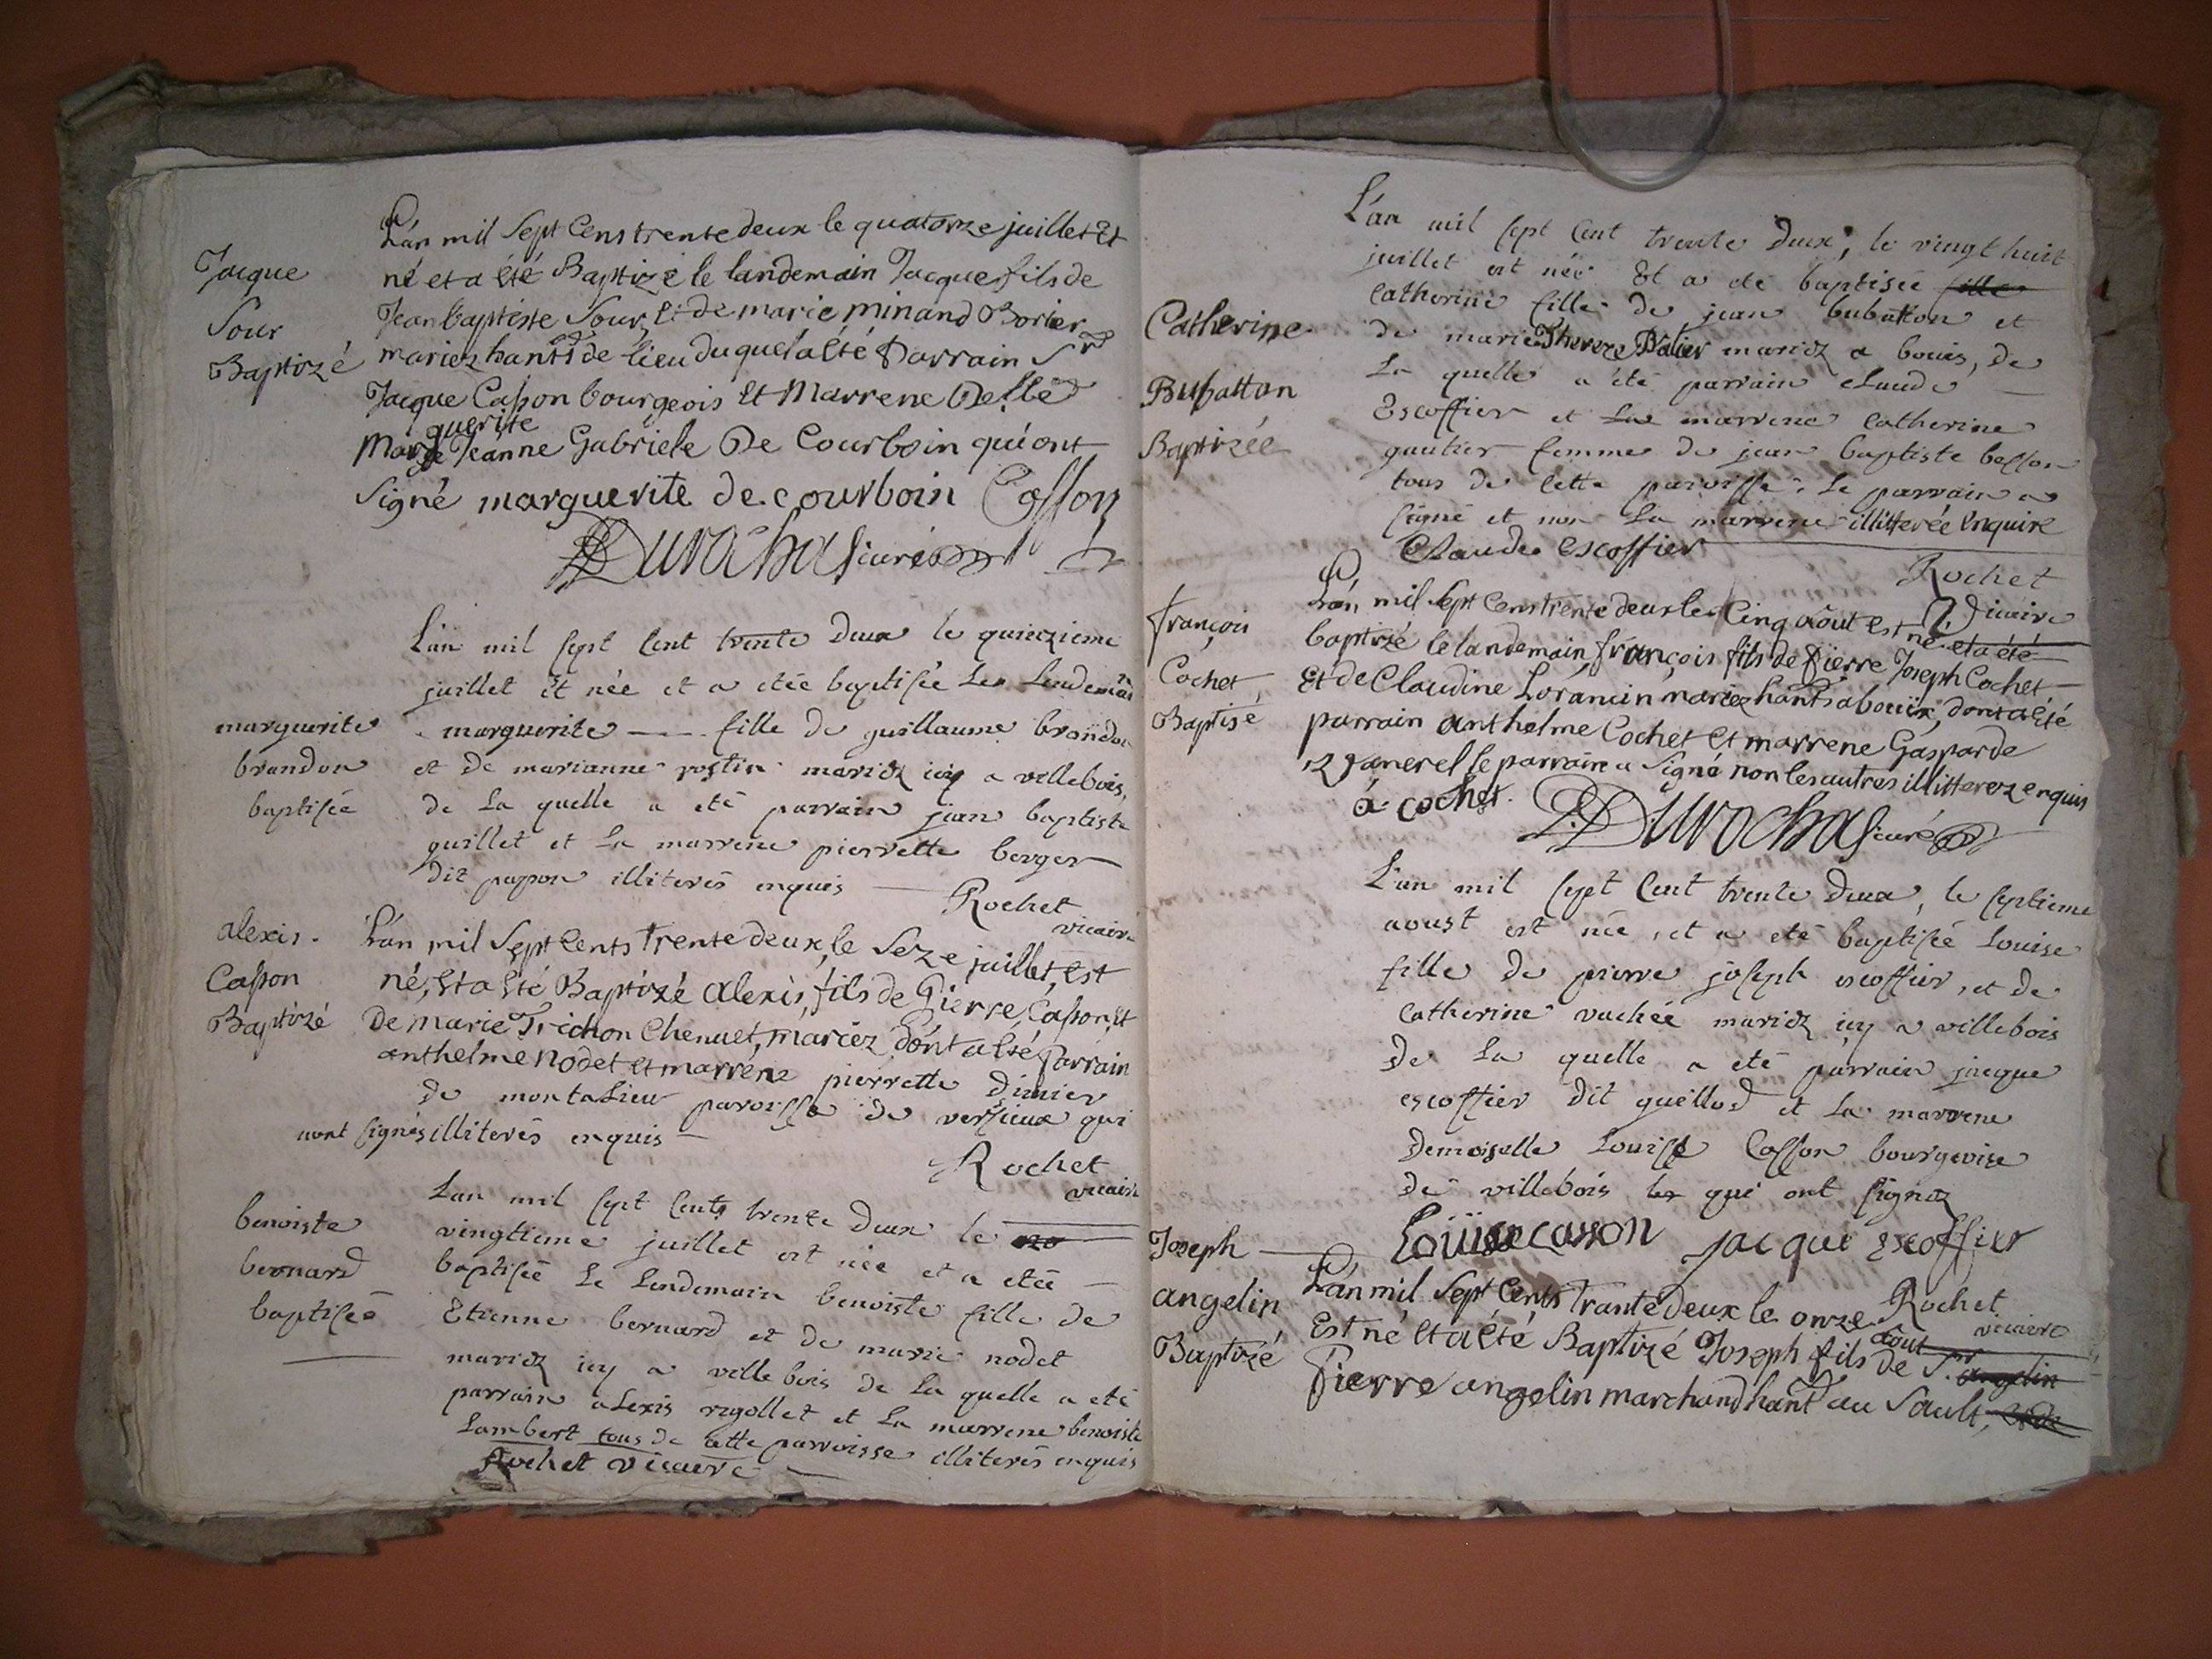 Jacque
Sour
Baptizé
L'án mil Sept Cens trente deux le quatorze juillet Et
né et a été Baptizé le landemain Jacque fils de
Jean baptiste Sour, Et de marie minand Borier
mariez hants de lieu duquel a été Parrain Sr
Jacque Casson bourgeois Et Marrene Delle
guerite
Mar Jeánne Gabriele De Courboin qui ont
Signé marguerite de courboin Casson
Durochas curé
marguerite
brandon
baptisée
L'an mil sept cent trente deux le quinzieme
juillet Et née et a etée baptisée Le Lendemain
marguerite fille de guillaume brandon
et de marianne mariez icy a villebois,
de La quelle a eté parrain jean baptiste
quillet et La marrene pierrette berger
dit papon illiterés enquis
Rochet
vicaire
alexis.
Casson
Baptizé
L'án mil Sept Cents trente deux, le Seze juillet, est
né, Et a été Baptizé alexis, fils de Pierre Casson, Et
De marie Trichon Chenuet, mariez dont a été Parrain
anthelme nodet et marréne pierrette dimier
de montalieu paroisse de versieux qui
nont signés illiterés enquis
Rochet
vicaire
benoiste
bernard
baptisée
Lan mil sept cents trente deux le
vingtieme juillet est née et a etée
baptisée Le Lendemain benoiste fille de
Etienne bernard et de marie nodet
mariez icy a villebois de La quelle a eté
parrain alexis rigollet et La marrene benoiste
Lambert tous de cette parroisse illiterés enquis
Rochet vicaire
Catherine
Bubatton
Baptizée
L'án mil sept cent trente deux, le vingt huit
juillet est née Et a eté baptisée fille
catherine fille de jean bubatton et
de marie Thereze Dalier mariez a bouis, de
La quelle a été parrain claude
Escoffier et La marrene catherine
gautier femme de jean baptiste besson
tous de cette paroisse. Le parrain a
signé et non La marrene illitterée Enquise
Claude Escoffier
Rochet
vicaire
françois
Cochet,
Baptisé
L'án mil Sept Cens trente deux le Cinq aôut est né et a été
baptizé le landemain françois fils de Pierre Joseph Cochet
Et de Claudine Lorancin mariez hants a boüix, dont a été
parrain anthelme Cochet Et marrene Gasparde
ganerel le parrain a Signé non les autres illitterez enquis
á cochet.
Durochas curé
L'an mil sept cent trente deux, le septieme
aoust est née, et a eté baptisée Louise
fille de pierre joseph escoffier, et de
catherine vachée mariez icy a villebois
de La quelle a eté parrain jacque
escoffier dit guéillod et La marrene
demoiselle Louise Casson bourgeoise
de villebois les qui ont signez
Loüise casson jacque Escoffier
Rochet
vicaire
Joseph
angelin
Baptizé
L'án mil Sept Cents trante deux le onze aout
Est né Et a été Baptizé Joseph fils de Sr. angelin
Pierre angelin marchand hant au Sault,